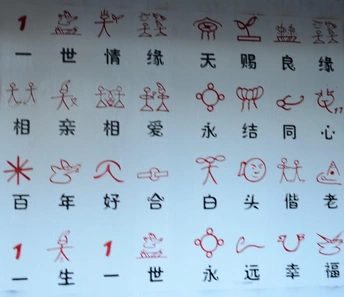 一世情缘 天赐良缘
相亲相爱 永结同心
百年好合 白头偕老
一生一世 永远幸福